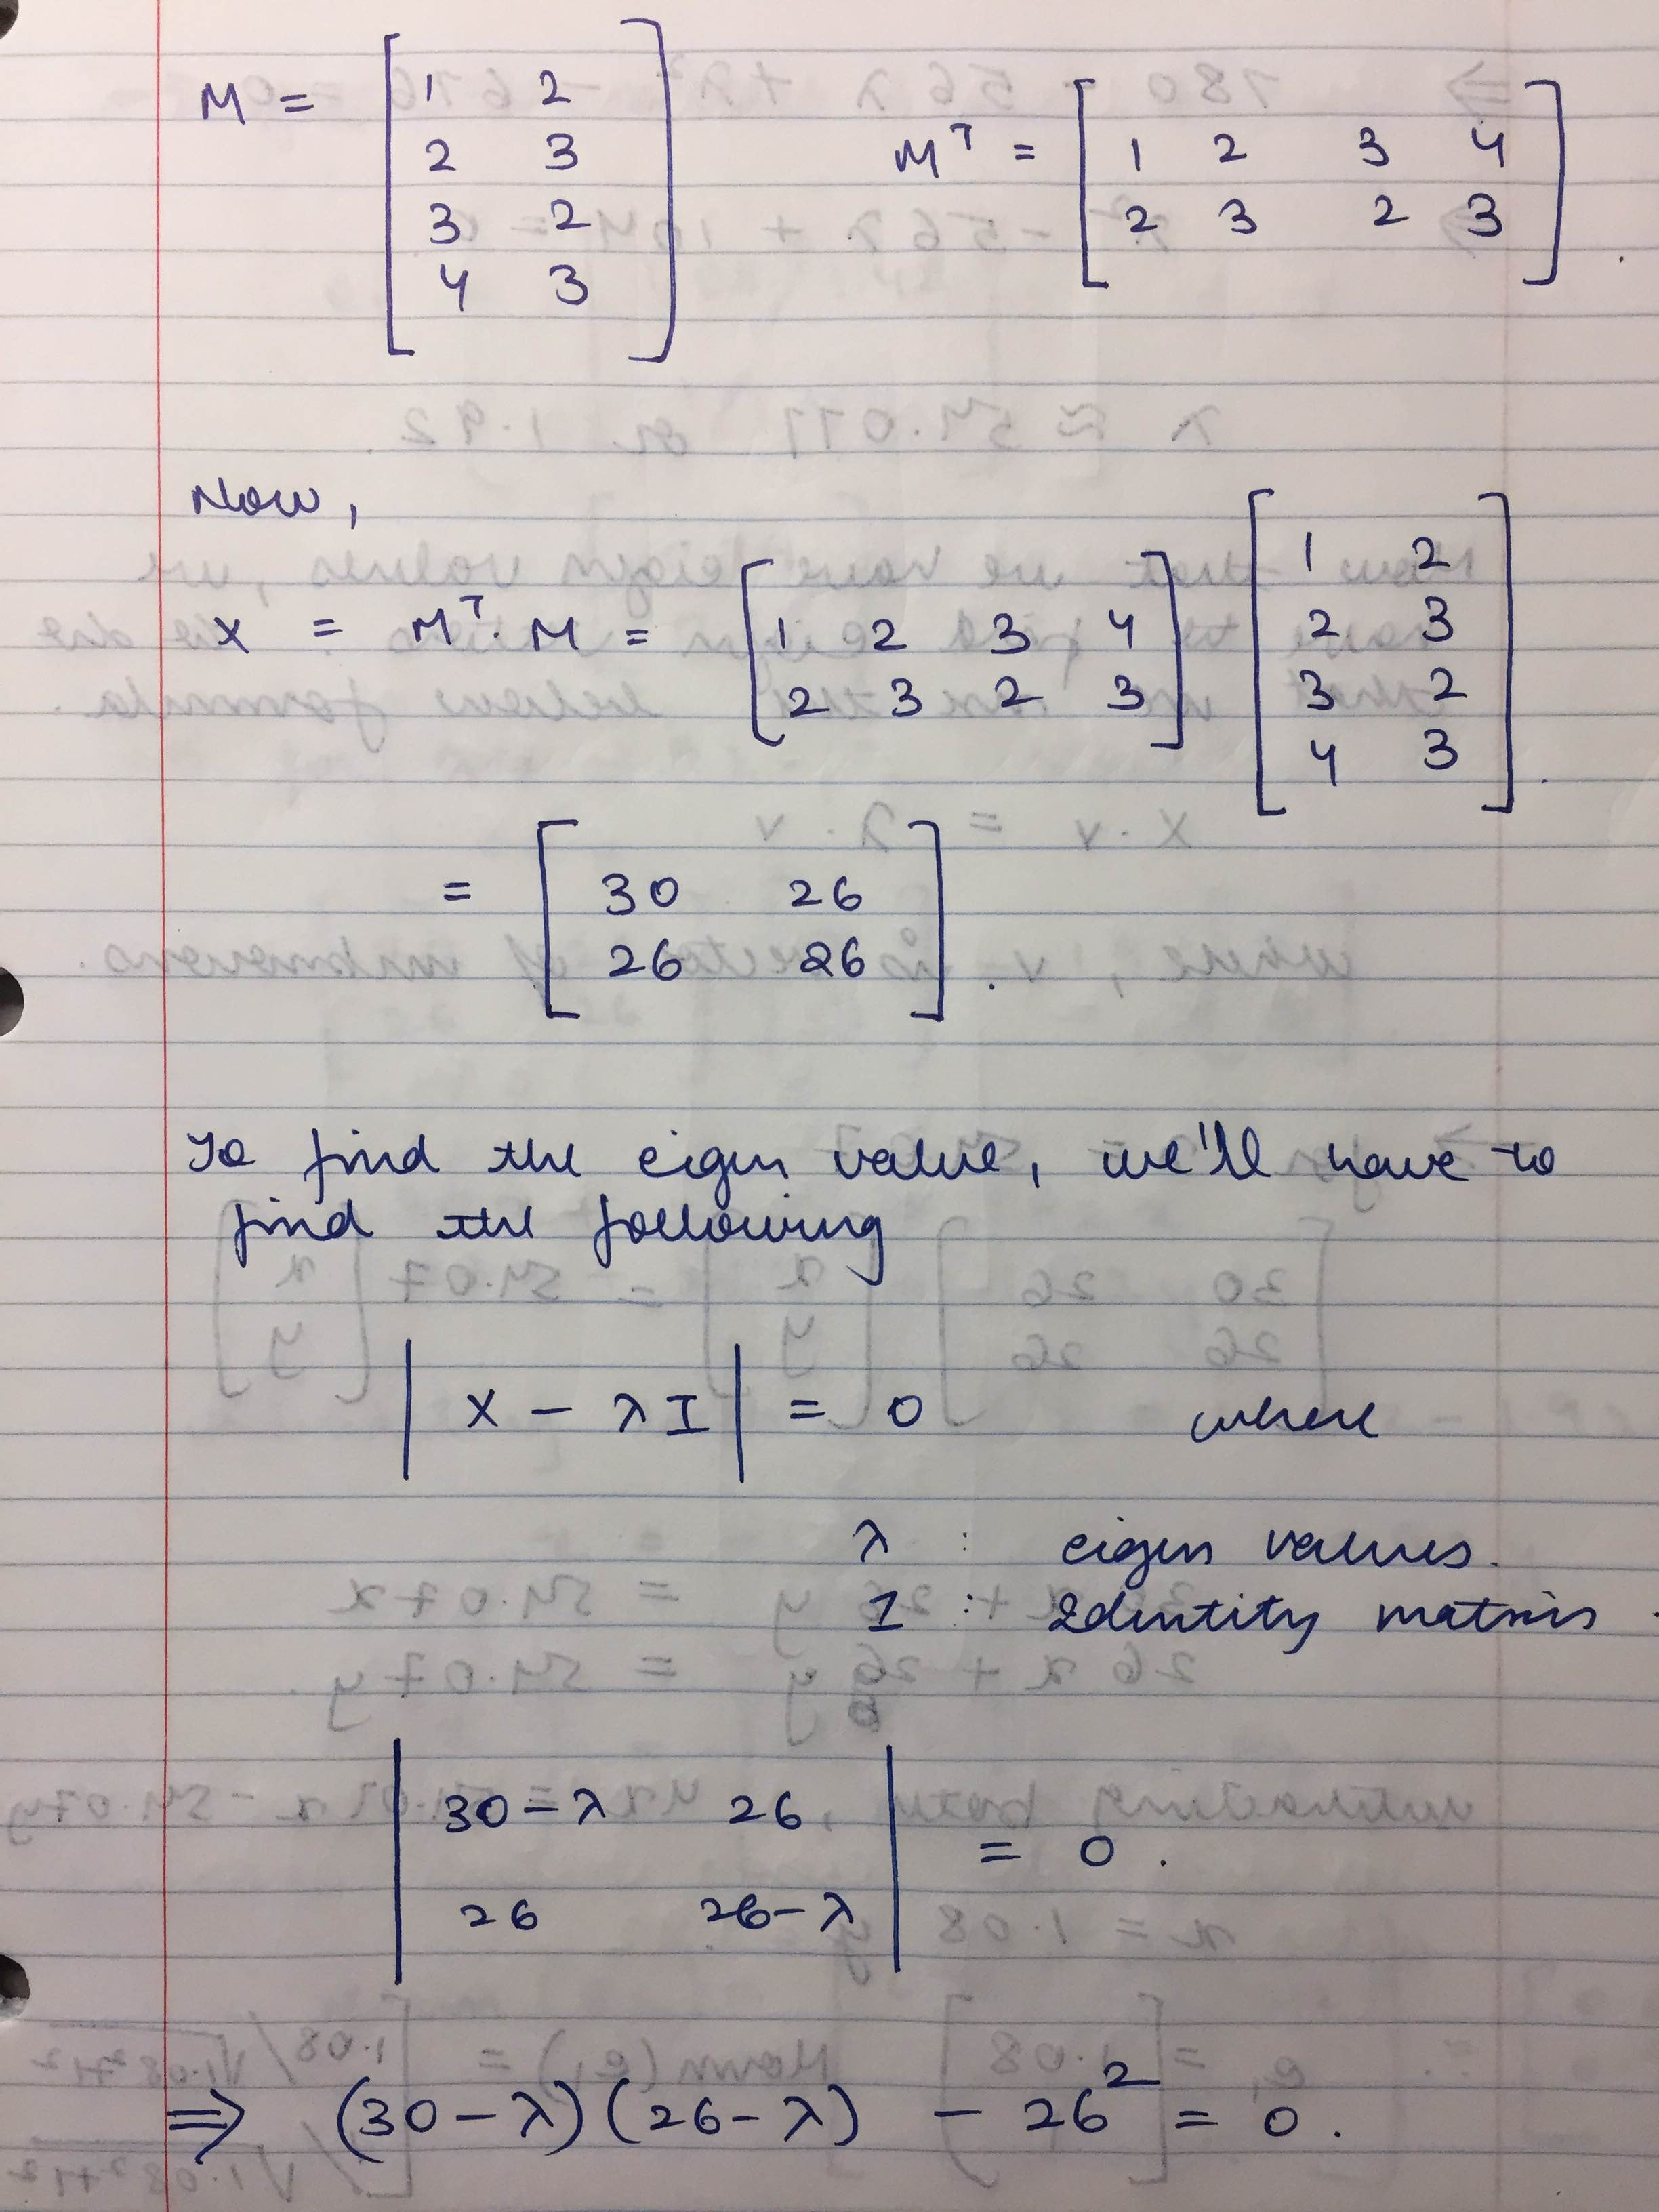 M = [ 1 2
2 3
3 2
4 3 ]
Mᵀ = [ 1 2 3 4
2 3 2 3 ] .
Now,
X = Mᵀ. M = [ 1 2 3 4
2 3 2 3 ] [ 1 2
2 3
3 2
4 3 ] .
= [ 30 26
26 26 ] .
To find the eigen value, we'll have to
find the following
| X - λI | = 0 where
λ : eigen values.
I : Identity matrix .
| 30-λ 26
26 26-λ | = 0 .
⇒ (30-λ)(26-λ) - 26² = 0 .